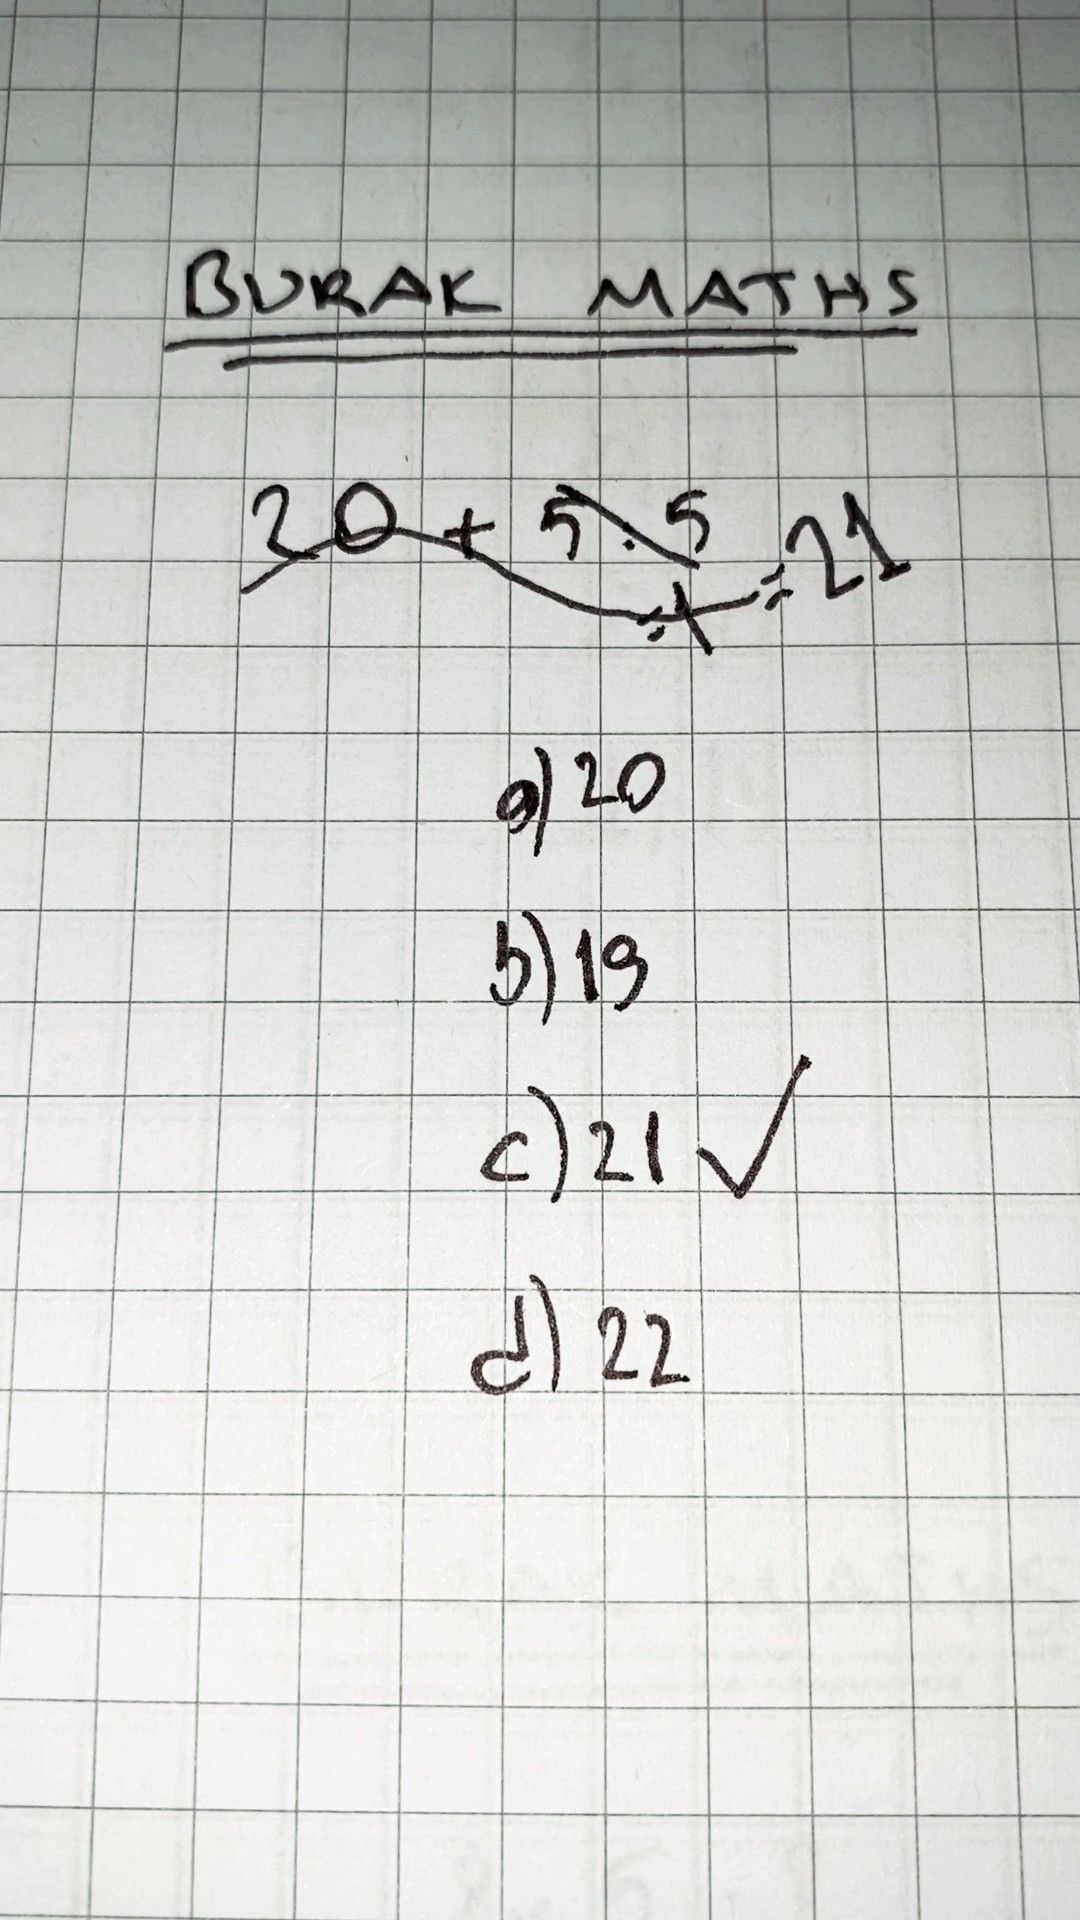 BURAK MATHS
20 + 5 : 5 = 21
a) 20
b) 19
c) 21 ✓
d) 22